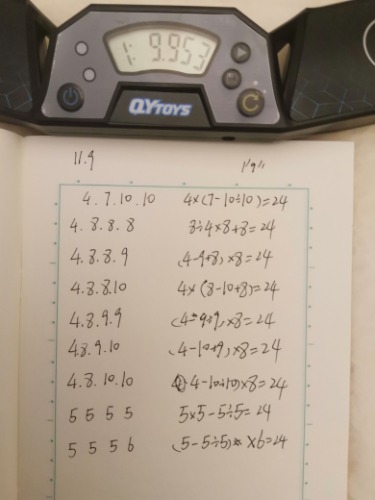 1: 9.953
QYTOYS
11.9 1'9"
4.7.10.10 4×(7-10÷10)=24
4.8.8.8 8÷4×8+8=24
4.8.8.9 (4-9+8)×8=24
4.8.8.10 4×(8-10+8)=24
4.8.9.9 (4-9+9)×8=24
4.8.9.10 (4-10+9)×8=24
4.8.10.10 (4-10+10)×8=24
5 5 5 5 5×5-5÷5=24
5 5 5 6 (5-5÷5)×6=24